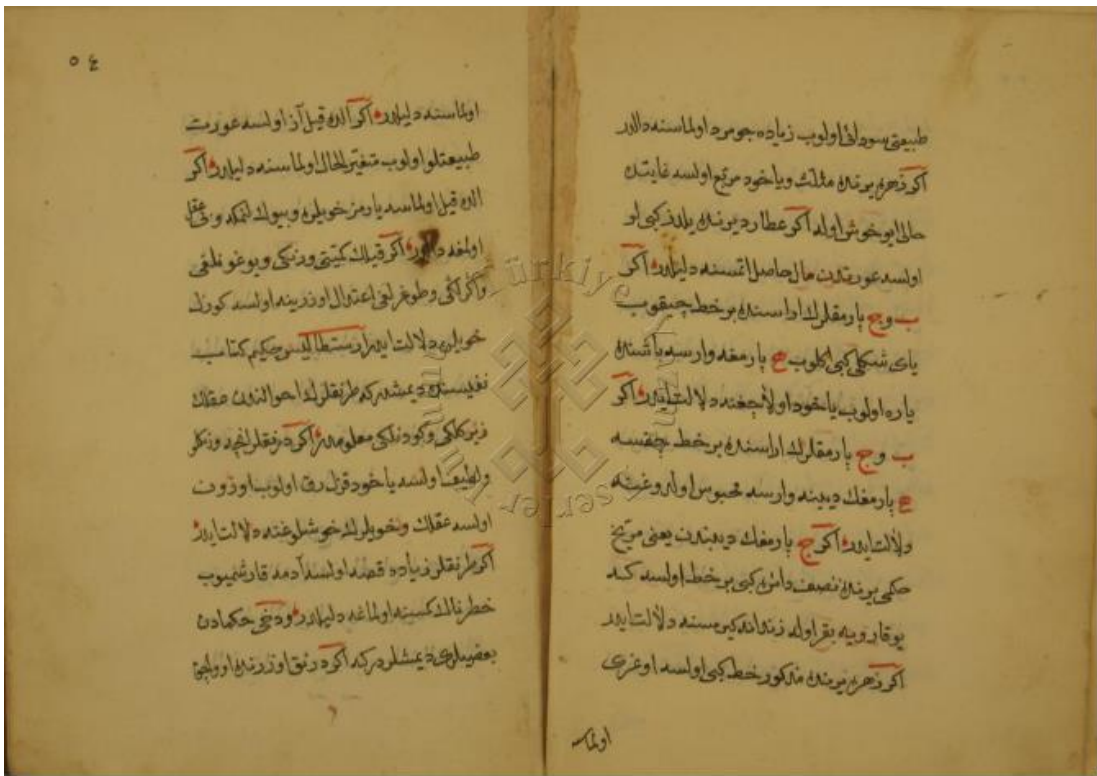 طبیعتی سودائی اولوب زیاده جومرد اولماسنه دالدر
اکر زهره یرنده مثلث ویاخود مربع اولسه غایتده
حالی ایو خوش اوله اکر عطارد یرنده یلدز کبی لو
اولسه عورتدن مال حاصل اتمسنه دلیلدر اکر
ب وج پارمقلرك اراسنده بر خط چیقوب
یای شکلی کبی اکلوب ح پارمغه وارسه باشنده
یاره اولوب یاخود اولاجغنه دلالت ایدر اکر
ب وج پارمقلرك اراسنده بر خط چقسه
ح پارمغك دیبنه وارسه محبوس اوله وغیته
دلالت ایدر اکر ج پارمغك دیبندن یعنی مریخ
حکمی یرنده نصف دائره کبی بر خط اولسه که
یوقارویه بقر اوله زندانه کیرمسنه دلالت ایدر
اکر زهره یرنده مذکور خط کبی اولسه اوغری
اولماسنه
٥٤
اولماسنه دلیلدر اکر الده قیل آز اولسه عورت
طبیعتلو اولوب متغیر الحال اولماسنه دلیلدر اکر
الده قیل اولماسه یارمز خویلره وبیوك لنمکه وبی عقل
اولمغه دالدر اکر قیلك کیتی ورنکی ویوغونلغی
واکر لکی وطوغرلغی اعتدال اوزرینه اولسه کوزل
خویلره دلالت ایدر ارسطاطالیس حکیم کتاب
نفیسنده دیمشدر که طرنقلرك احوالندن عقلك
زیرکلکی وکودنلکی معلومدر اکر درنقلر انجه ورنکلو
ولطیف اولسه یاخود قزل رق اولوب اوزون
اولسه عقلك وخویلرك خوشلوغنه دلالت ایدر
اکر طرنقلر زیاده قصه اولسه آدمه قارشمیوب
خطرناك کسینه اولماغه دلیلدر ودخی حکمادن
بعضیلری دیمشلردر که اکر درنق اوزرنده اوواجق